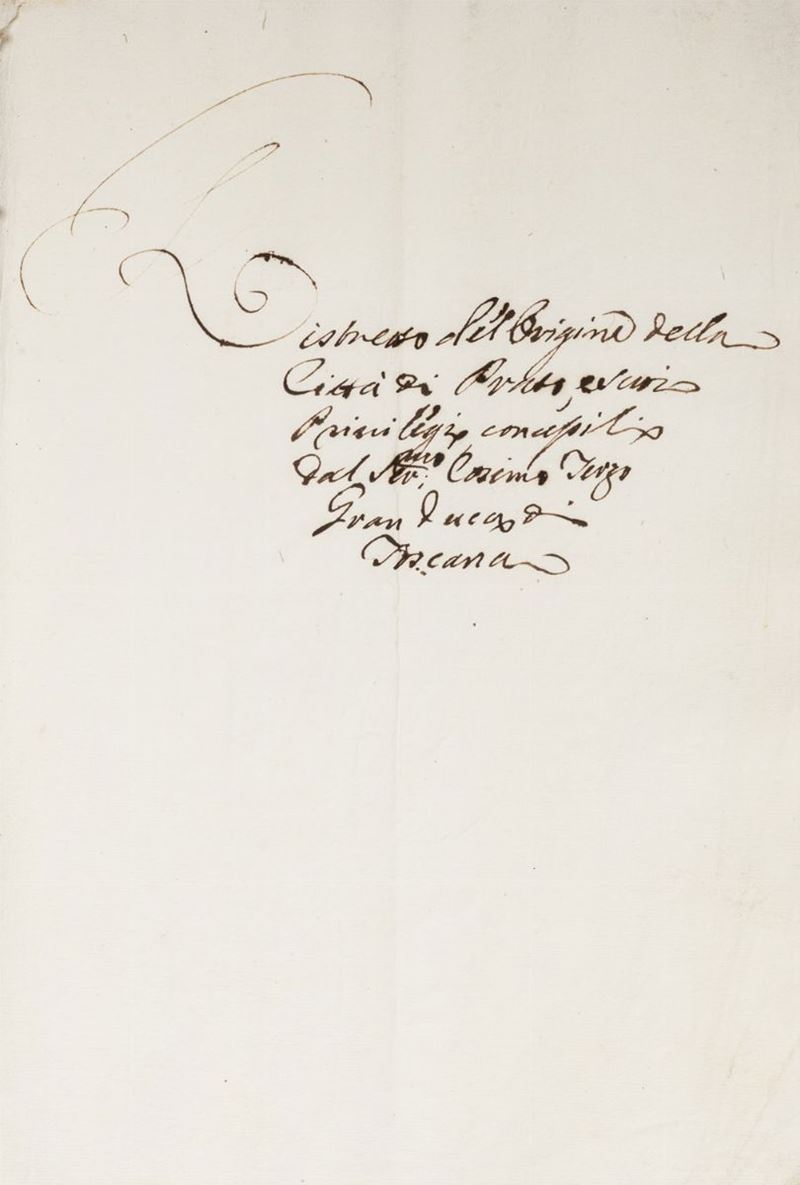 Distretto dell'Origine della
Città di Prato, e suoi
Privilegi concessili
dal Ser.mo Cosimo Terzo
Gran Duca di
Toscana